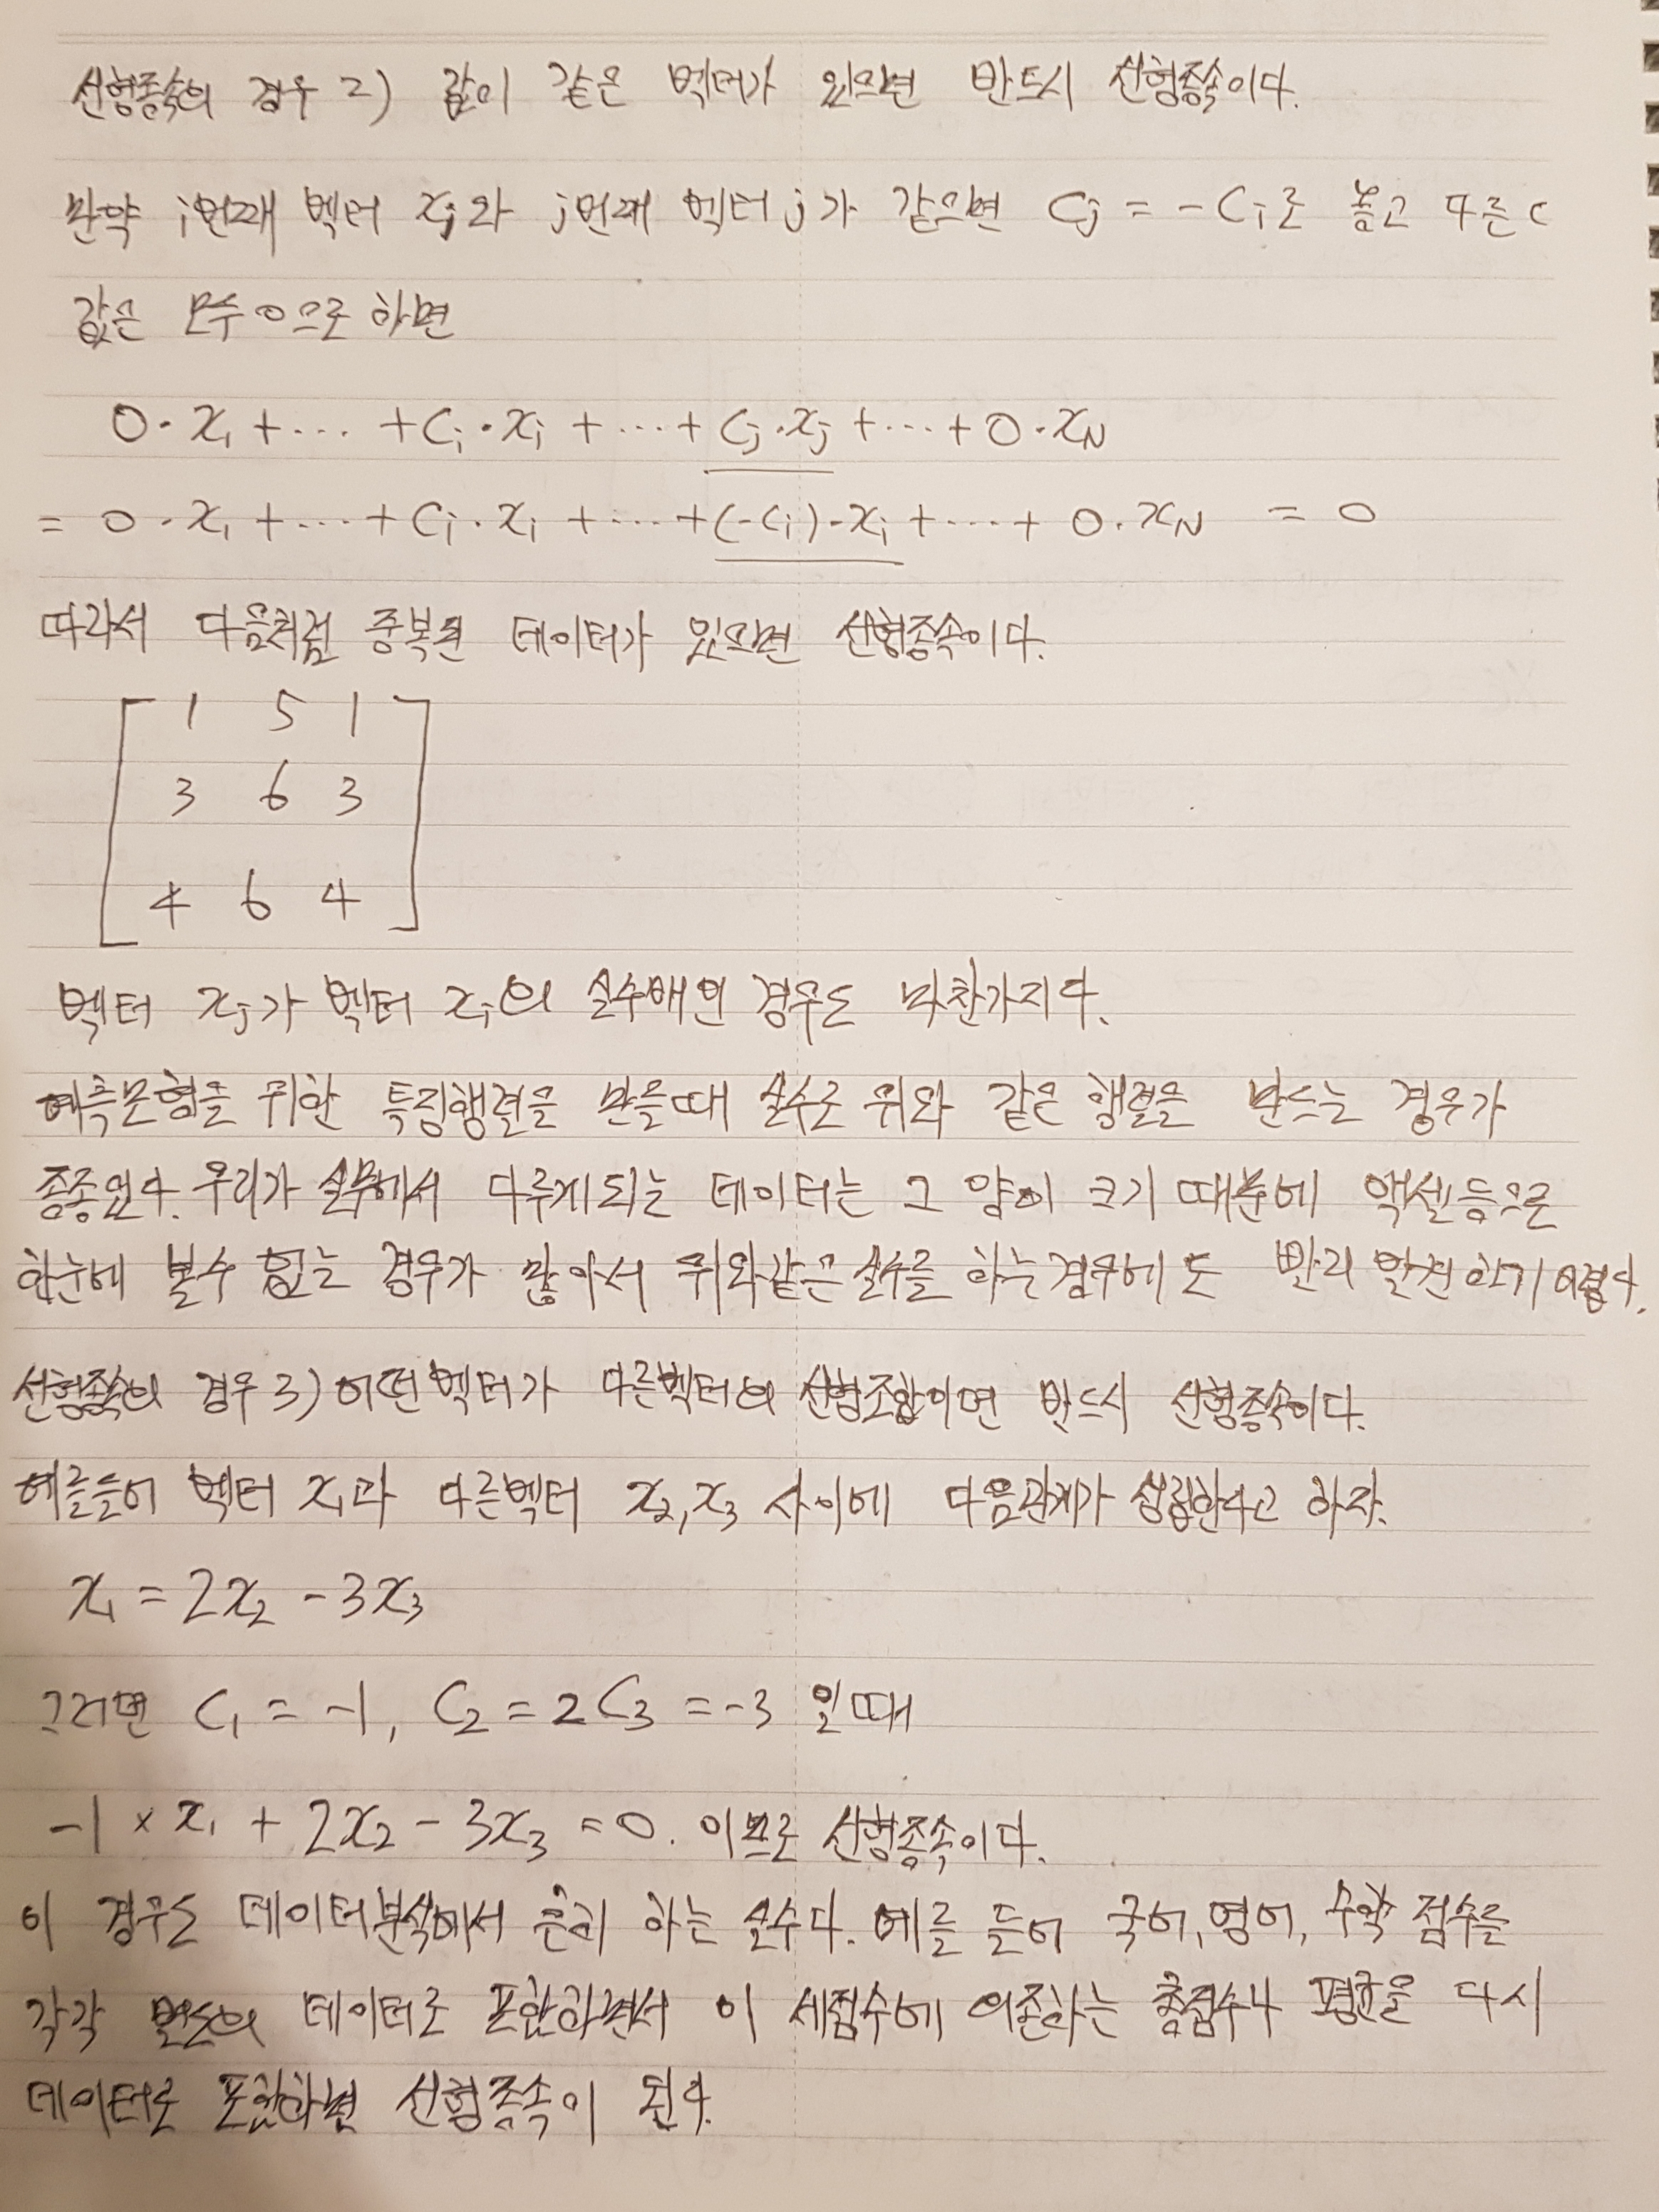 선형종속의 경우 2) 값이 같은 벡터가 있으면 반드시 선형종속이다.
만약 i번째 벡터 xi와 j번째 벡터 j가 같으면 Cj = -Ci로 놓고 다른 c
값은 모두 0으로 하면
0·x₁ + ... + Ci·xi + ... + Cj·xj + ... + 0·xN
= 0·x₁ + ... + Ci·xi + ... + (-Ci)·xi + ... + 0·xN = 0
따라서 다음처럼 중복된 데이터가 있으면 선형종속이다.
1 5 1
3 6 3
4 6 4
벡터 xj가 벡터 xi의 실수배인 경우도 마찬가지다.
예측모형을 위한 특징행렬을 만들때 실수로 위와 같은 행렬을 만드는 경우가
종종있다. 우리가 실무에서 다루게되는 데이터는 그 양이 크기 때문에 엑셀등으로
한눈에 볼수 없는 경우가 많아서 위와같은 실수를 하는경우에도 빨리 발견하기 어렵다.
선형종속의 경우 3) 어떤벡터가 다른벡터의 선형조합이면 반드시 선형종속이다.
예를들어 벡터 x₁과 다른벡터 x₂, x₃ 사이에 다음관계가 성립한다고 하자.
x₁ = 2x₂ - 3x₃
그러면 C₁ = -1, C₂ = 2 C₃ = -3 일때
-1 × x₁ + 2x₂ - 3x₃ = 0. 이므로 선형종속이다.
이 경우도 데이터분석에서 흔히 하는 실수다. 예를 들어 국어, 영어, 수학 점수를
각각 변도의 데이터로 포함하면서 이 세점수에 의존하는 총점수나 평균을 다시
데이터로 포함하면 선형종속이 된다.